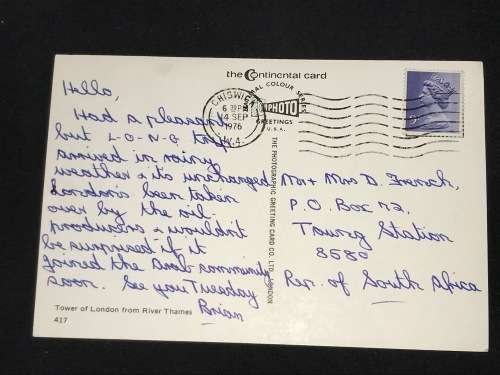 the Continental card
CHISWICK
6 30PM
14 SEP
1976
W.4.
COLOUR SERIES
PHOTO
GREETINGS
U.S.A.
THE PHOTOGRAPHIC GREETING CARD CO. LTD. LONDON
Hello,
Had a pleasant
but L-O-N-G trip
arrived in rainy
weather & its unchanged
London's been taken
over by the oil
producers & wouldn't
be surprised if it
joined the Arab community
soon. See you Tuesday
Brian
Mr + Mrs D. French,
P.O. Box 72,
Touws Station
8580
Rep. of South Africa
Tower of London from River Thames
417